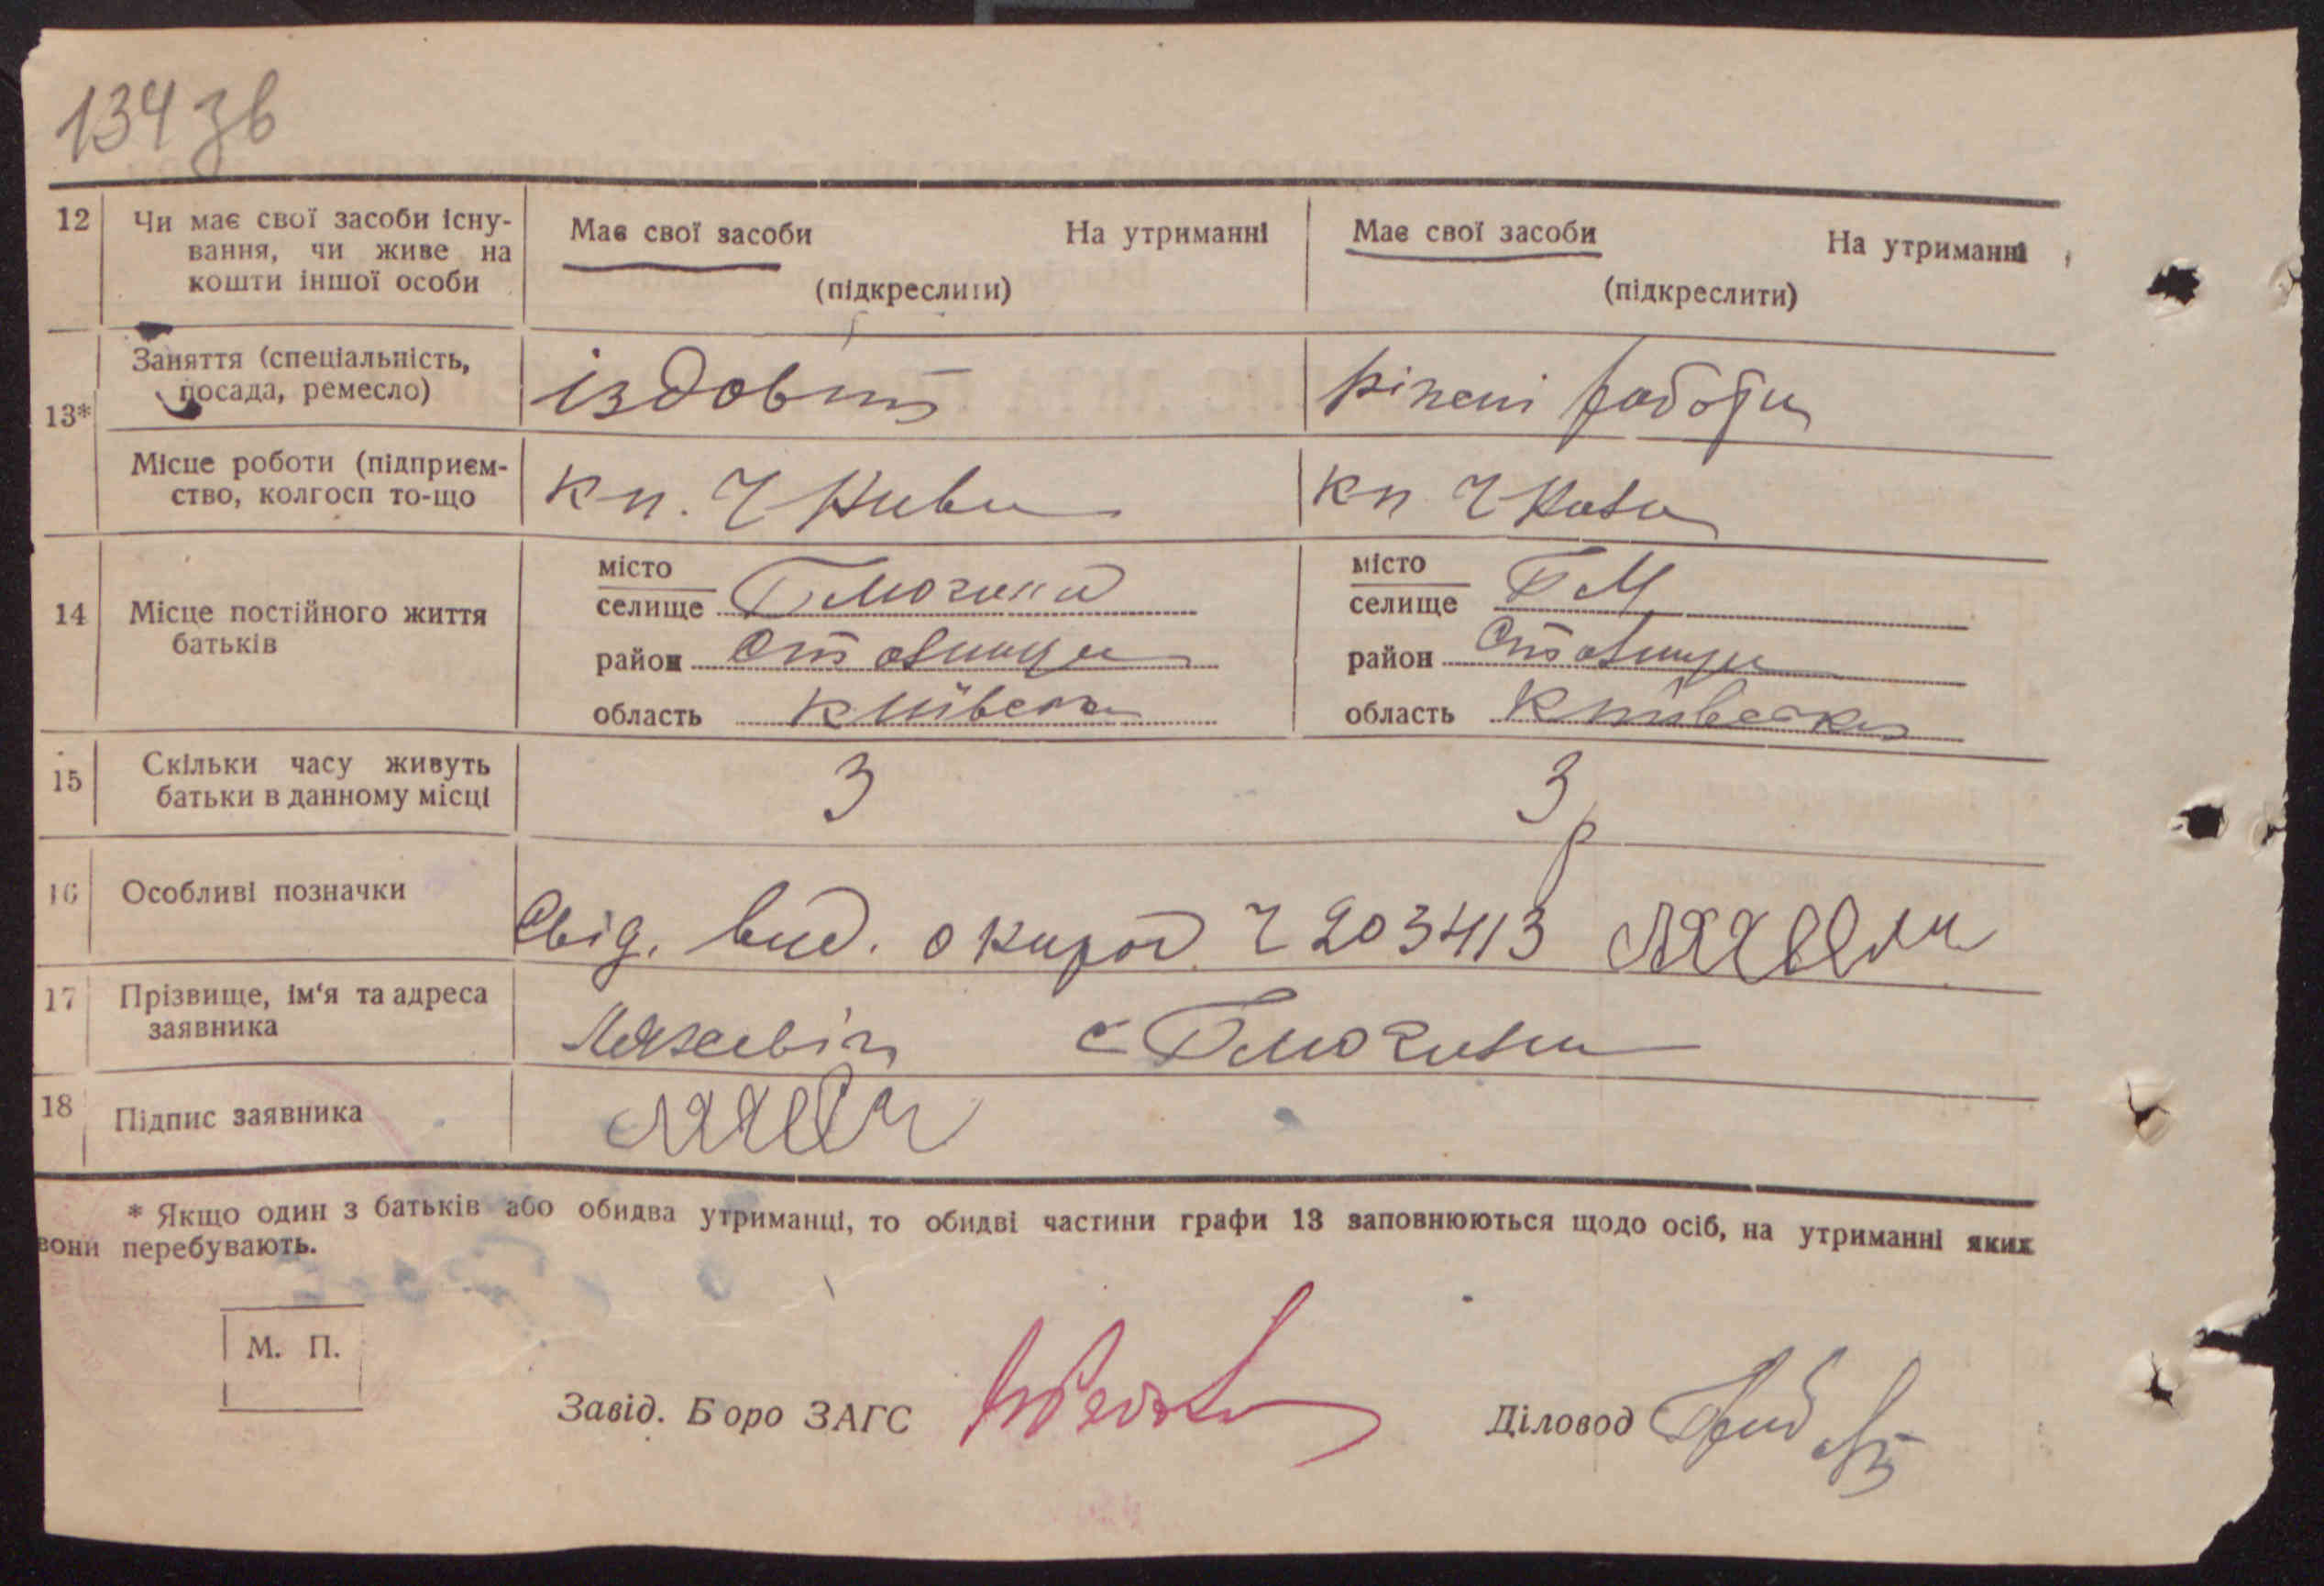 134 зв
12 Чи має свої засоби існу-
вання, чи живе на
кошти іншої особи
Має свої засоби На утриманні
(підкреслити)
Має свої засоби На утриманні
(підкреслити)
13* Заняття (спеціальність,
посада, ремесло)
їздовий
різені работи
Місце роботи (підприєм-
ство, колгосп то-що
кп. Ч Нива
кп Ч Нива
14 Місце постійного життя
батьків
місто
селище
район Ставищи
область Київська
місто
селище
район Ставищи
область Київська
15 Скільки часу живуть
батьки в данному місці
3
3 р
16 Особливі позначки
Свід. вид. 203413
17 Прізвище, ім'я та адреса
заявника
с
18 Підпис заявника
* Якщо один з батьків або обидва утриманці, то обидві частини графи 13 заповнюються щодо осіб, на утриманні яких
вони перебувають.
М. П.
Завід. Боро ЗАГС
Діловод